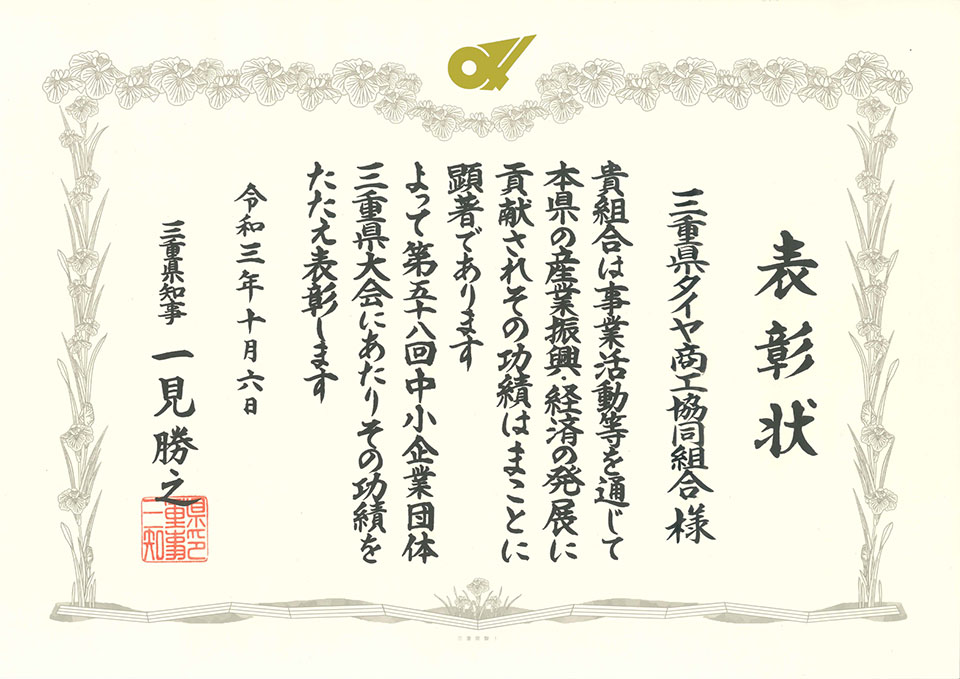 表彰状
三重県タイヤ商工協同組合様
貴組合は事業活動等を通じて
本県の産業振興・経済の発展に
貢献されその功績はまことに
顕著であります
よって第五十八回中小企業団体
三重県大会にあたりその功績を
たたえ表彰します
令和三年十月六日
三重県知事 一見勝之